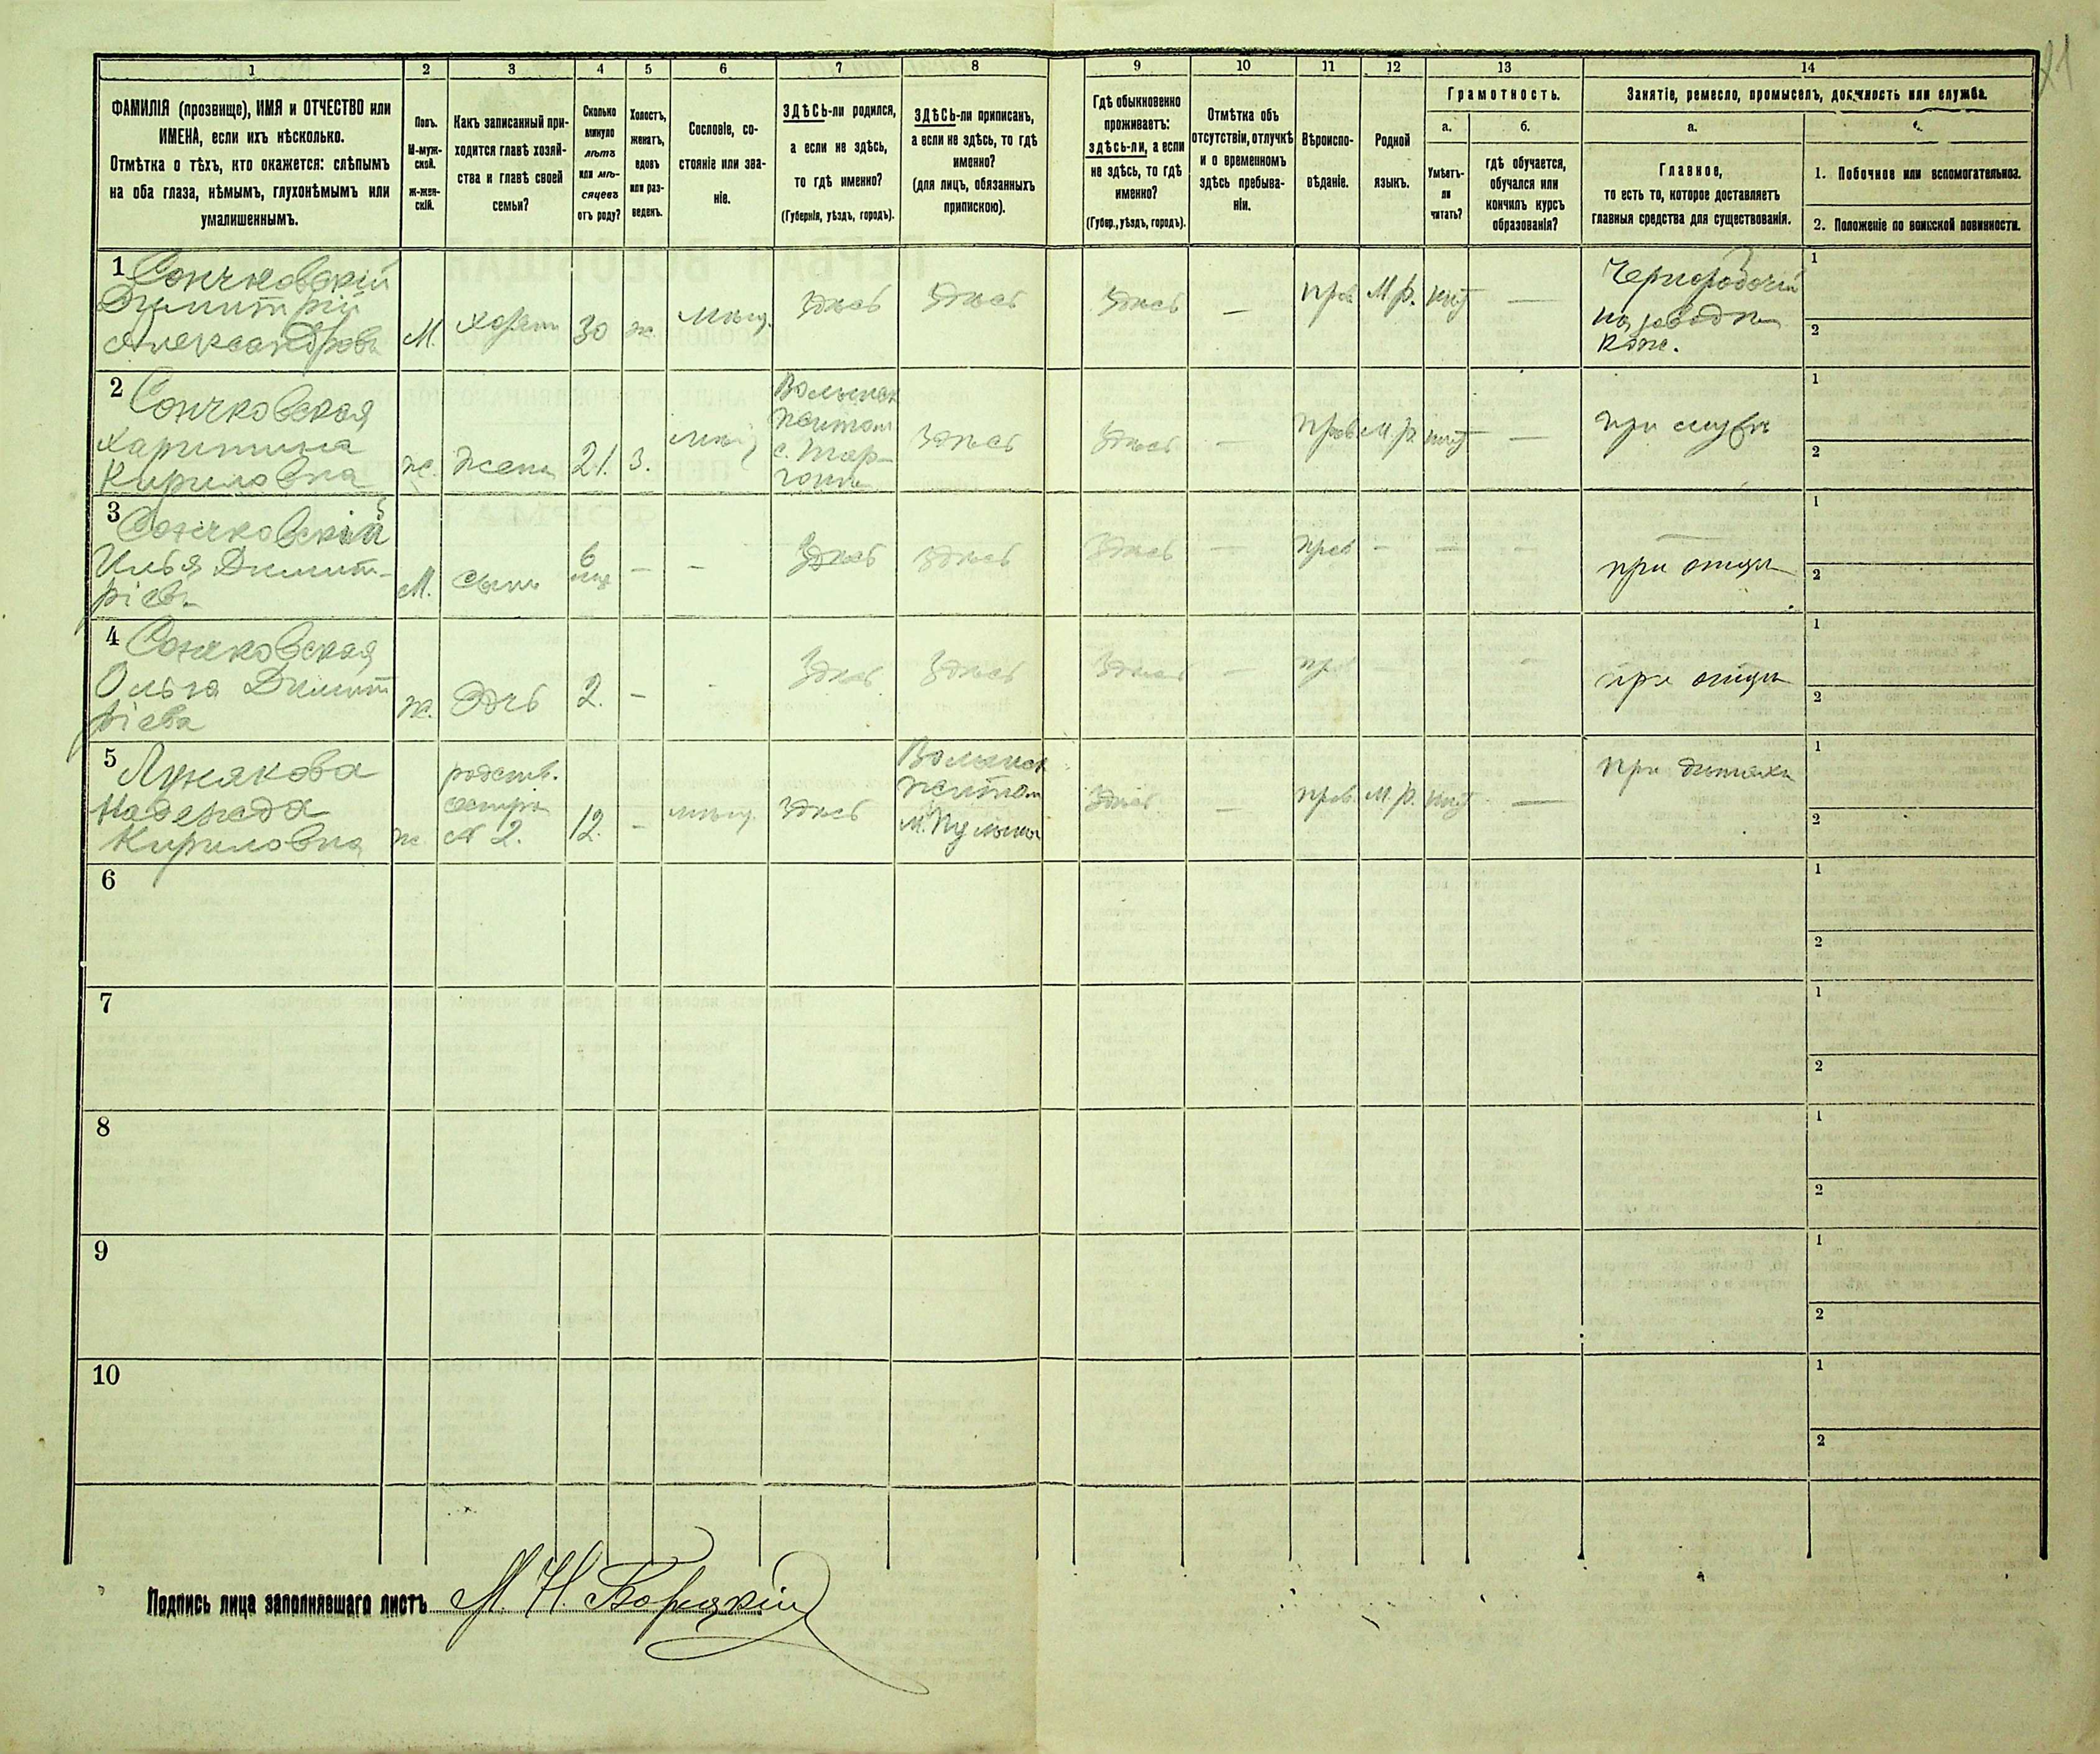 21
1 2 3 4 5 6 7 8 9 10 11 12 13 14
ФАМИЛІЯ (прозвище), ИМЯ и ОТЧЕСТВО или
ИМЕНА, если ихъ нѣсколько.
Отмѣтка о тѣхъ, кто окажется: слѣпымъ
на оба глаза, нѣмымъ, глухонѣмымъ или
умалишеннымъ.
Полъ.
М-муж-
ской.
Ж-жен-
скій.
Какъ записанный при-
ходится главѣ хозяй-
ства и главѣ своей
семьи?
Сколько
минуло
лѣтъ
или мѣ-
сяцевъ
отъ роду?
Холостъ,
женатъ,
вдовъ
или раз-
веденъ.
Сословіе, со-
стояніе или зва-
ніе.
ЗДѢСЬ-ли родился,
а если не здѣсь,
то гдѣ именно?
(Губернія, уѣздъ, городъ).
ЗДѢСЬ-ли приписанъ,
а если не здѣсь, то гдѣ
именно?
(для лицъ, обязанныхъ
припискою).
Гдѣ обыкновенно
проживаетъ:
здѣсь-ли, а если
не здѣсь, то гдѣ
именно?
(Губер., уѣздъ, городъ).
Отмѣтка объ
отсутствіи, отлучкѣ
и о временномъ
здѣсь пребыва-
ніи.
Вѣроиспо-
вѣданіе.
Родной
языкъ.
Грамотность.
а.
Умѣетъ-
ли
читать?
б.
гдѣ обучается,
обучался или
кончилъ курсъ
образованія?
Занятіе, ремесло, промыселъ, должность или служба.
а.
Главное,
то есть то, которое доставляетъ
главныя средства для существованія.
1. Побочное или вспомогательное.
2. Положеніе по воинской повинности.
1
Димитрій
Александровъ
М.
30
ж.
мѣщ.
Здѣсь
Здѣсь
Здѣсь
—
прав
М.р.
—
Чернорабочій
на заводѣ
1
2
2
Харитина
Кириловна
ж.
жена
21.
З.
Волынск
Житом
Здѣсь
Здѣсь
—
прав
М.р.
—
1
2
3
Илья Димит-
ріевъ
М.
сынъ
6
—
—
Здѣсь
Здѣсь
Здѣсь
—
прав
—
—
—
при отцѣ
1
2
4
Ольга Димит
ріева
ж.
дчь
2.
—
-
Здѣсь
Здѣсь
Здѣсь
—
прав
—
-
при отцѣ
1
2
5
Лунякова
Надежда
Кириловна
ж.
родств.
сестра
№ 2.
12.
-
мѣщ.
Здѣсь
Волынск
Житом
м. Пулины
Здѣсь
—
прав
М.р.
—
1
2
6
1
2
7
1
2
8
1
2
9
1
2
10
1
2
Подпись лица заполнявшаго листъ М. Н. Борецкій